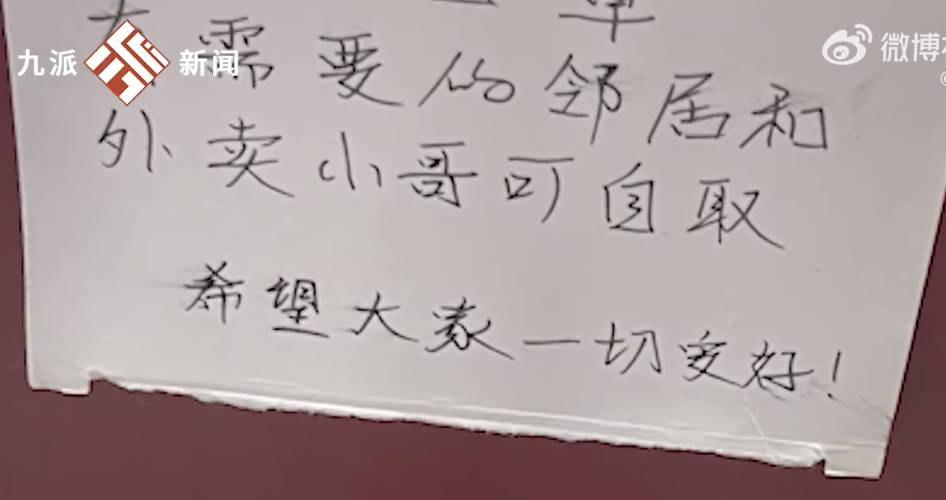 九派新闻
微博
需要的邻居和
外卖小哥可自取
希望大家一切安好！